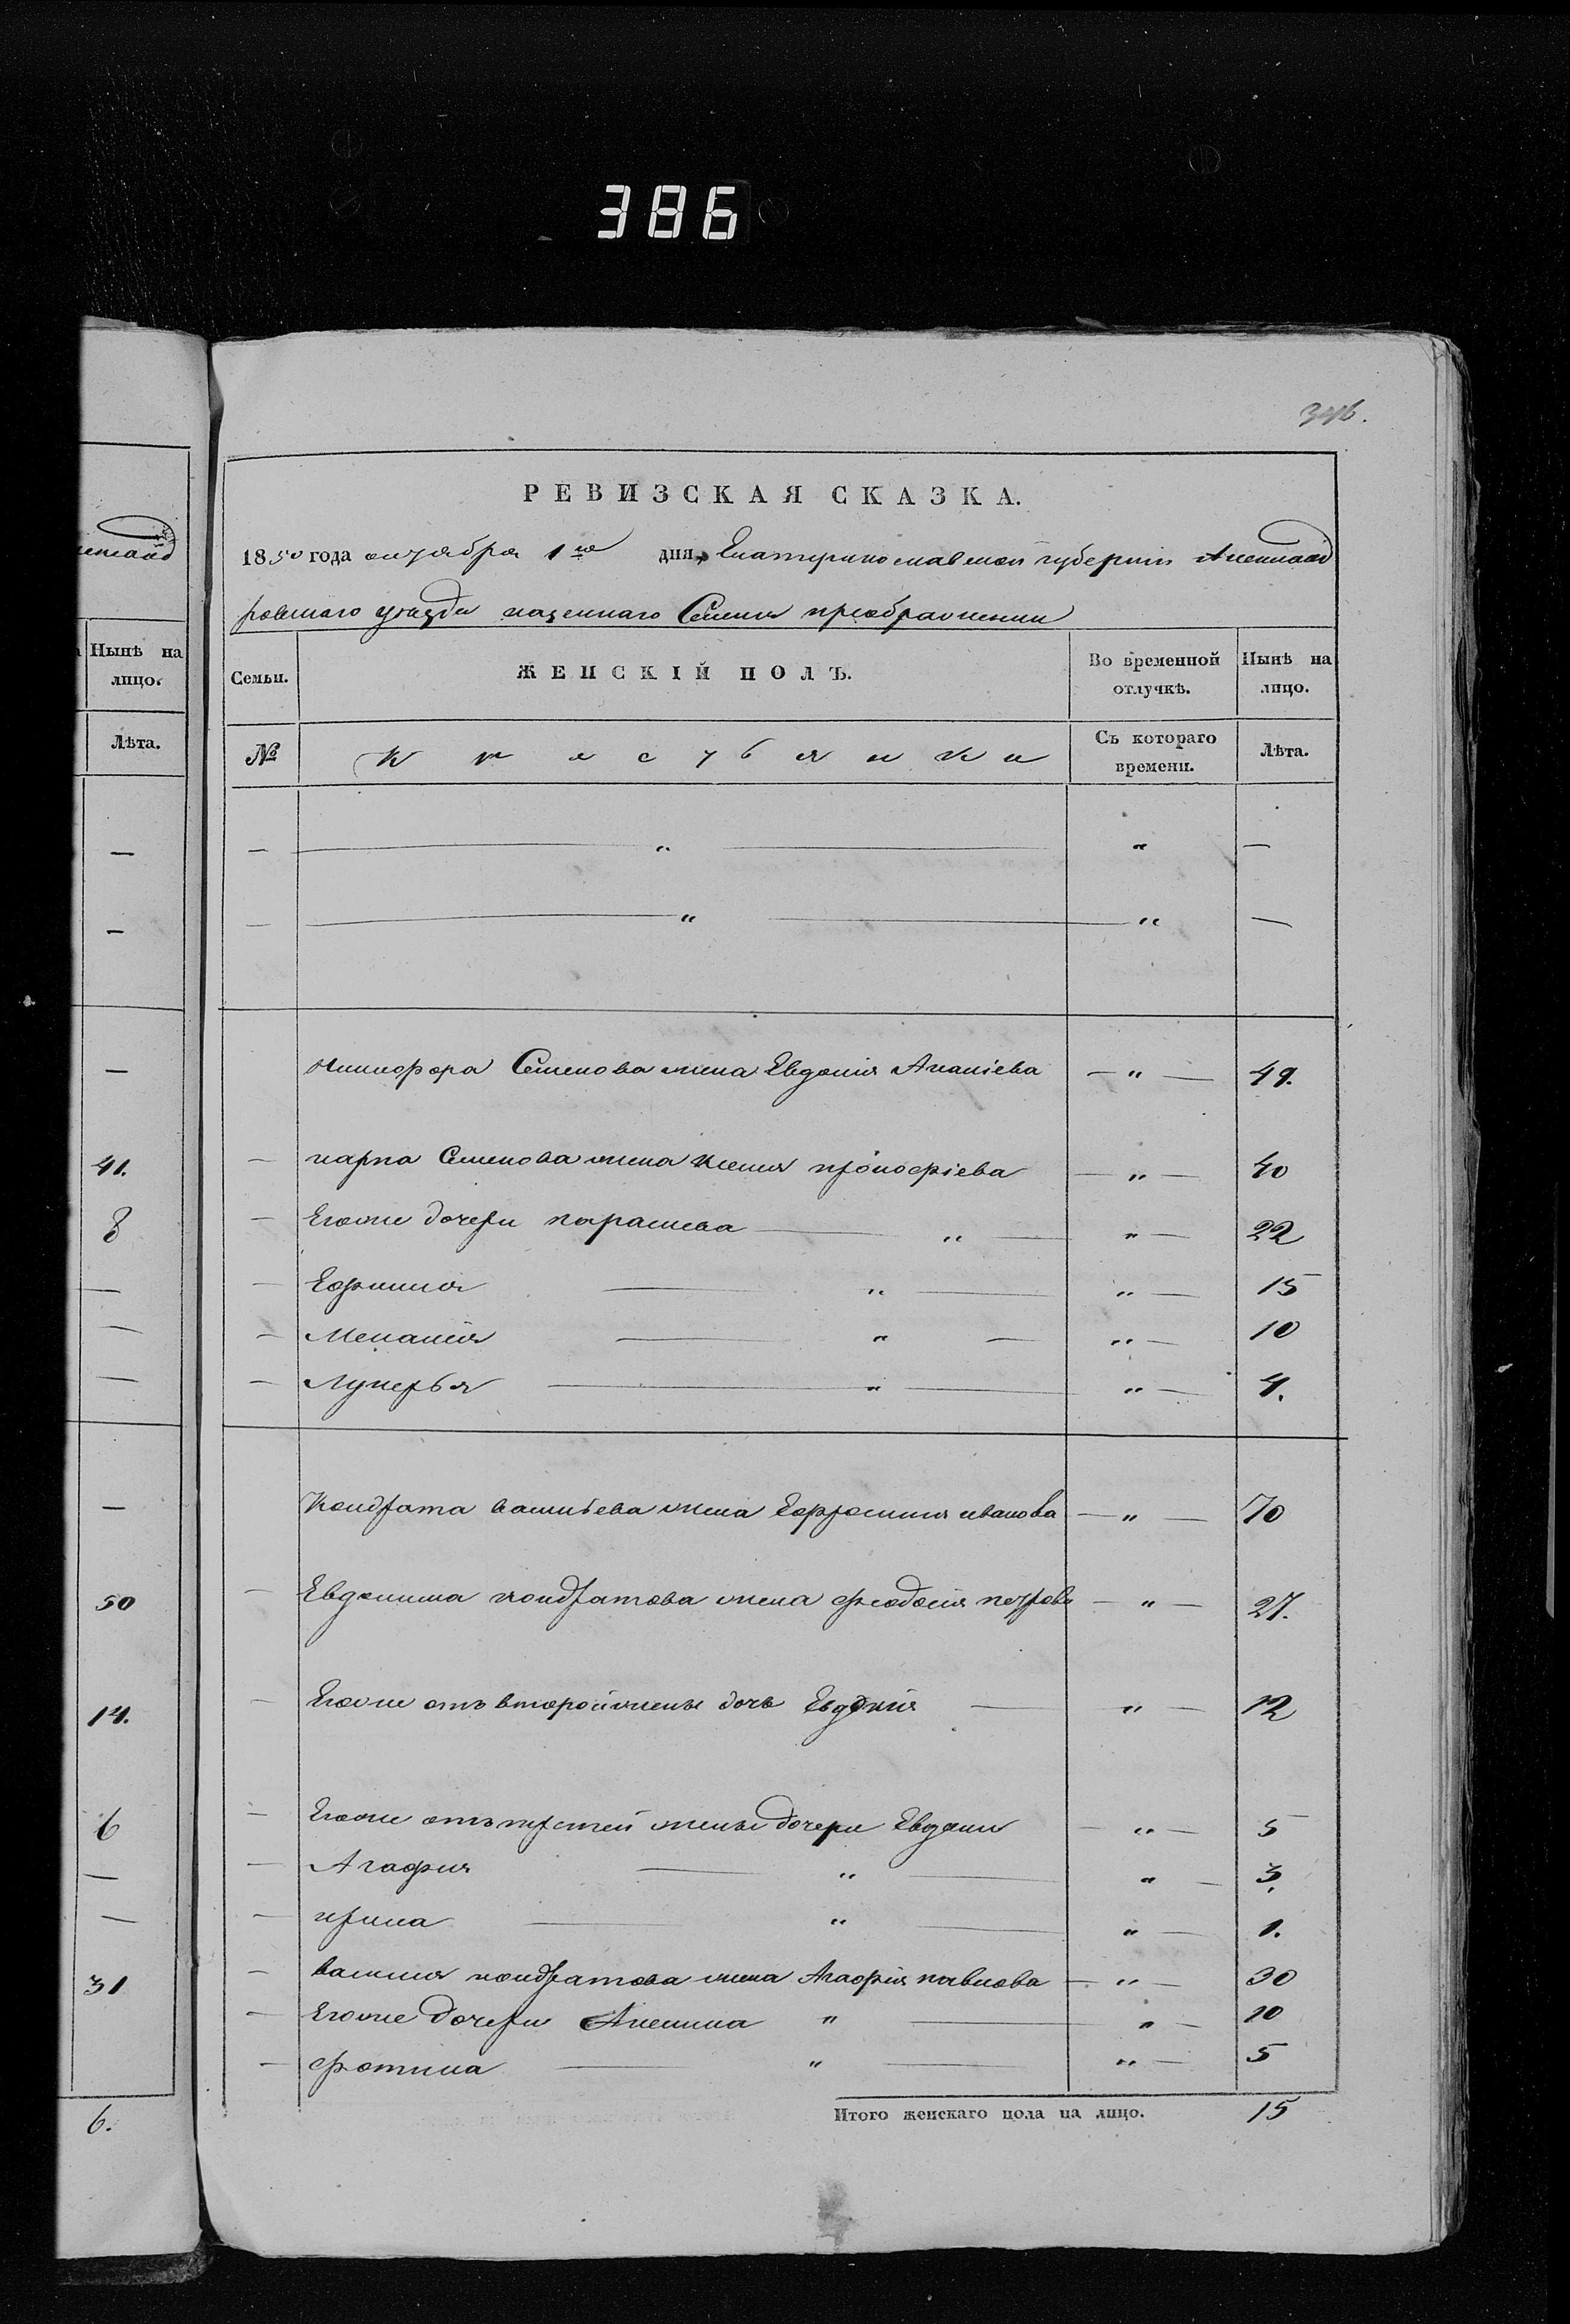 386
346.
РЕВИЗСКАЯ СКАЗКА.
1850 года октября 1го дня, Екатеринославской губерніи Александ
ровскаго уезда казеннаго Селенія преображенки
Нынѣ на лицо.
Лѣта.
Семьи.
ЖЕНСКІЙ ПОЛЪ.
Во временной отлучкѣ.
Нынѣ на лицо.
№
Крестьянки
Съ котораго времени.
Лѣта.
— — „ — „ —
— — „ — „ —
— Никифора Семенова жена Евдокія Ананіева — „ — 49.
41. — карпа Семенова жена Ксенія прокофіева — „ — 40
8 — Егоже дочери параскева — „ — „ — 22
— — Ефимия — „ — „ — 15
— — Меланія — „ — „ — 10
— — Лукерья — „ — „ — 4.
— Кондрата васильева жена Ефросиния иванова — „ — 70
50 — Евдокима кондратова жена феодосия петрова — „ — 27.
14. — Егоже отъ второй жены дочь Евдокія — „ — 12
6 — Егоже отъ третей жены дочери Евдокия — „ — 5
— — Агафия — „ — „ — 3.
— — ирина — „ — „ — 1.
31 — василия кондратова жена Агафія павлова — „ — 30
— Егоже дочери Акилина „ — „ — 10
— фотина — „ — „ — 5
6.
Итого женскаго пола на лицо. 15